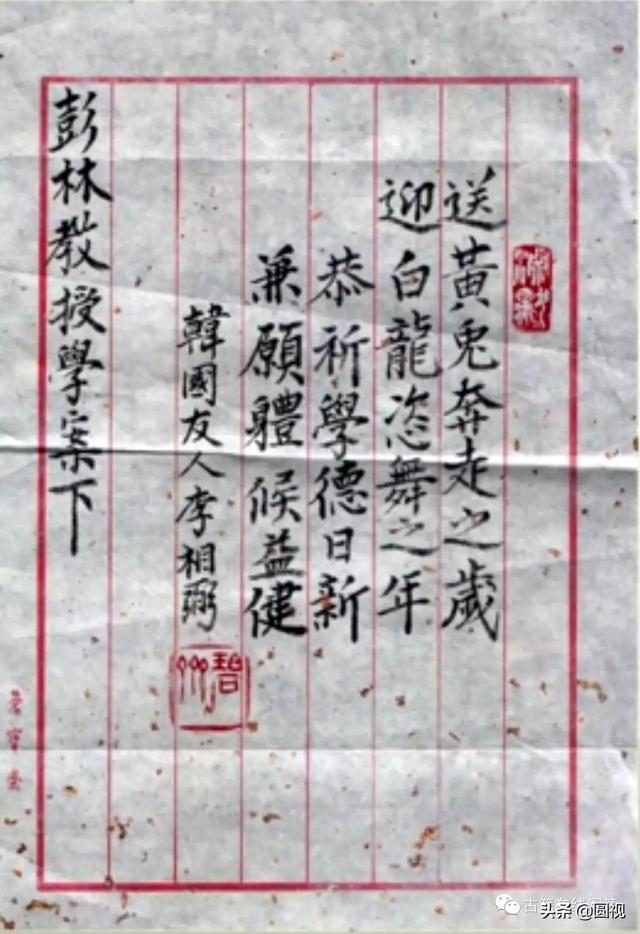 送黃兎奔走之歲
迎白龍恣舞之年
恭祈學德日新
兼願體候益健
韓國友人李相弼
彭林教授學案下
头条 @圆视